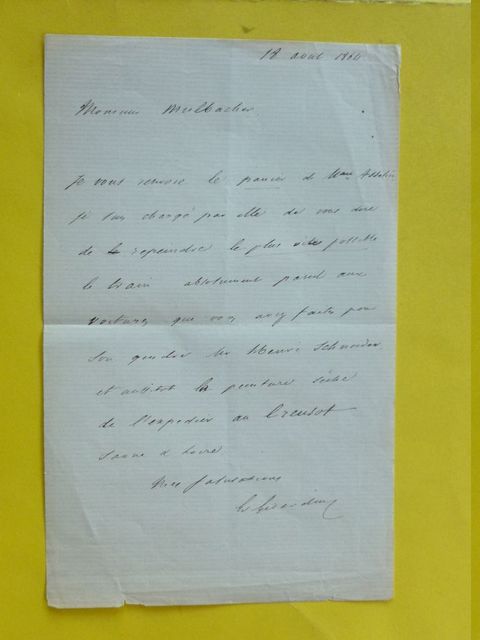 18 avril 18
Monsieur Mulbacher
Je vous renvoie le panier de Mme Asselin
je suis chargé par elle de vous dire
de le repeindre le plus vite possible
le train absolument pareil aux
voitures que vous avez faites pour
son gendre Mr Henri Schneider
et aussitot la peinture sèche
de l'expedier au Creusot
Saone & Loire
Mes salutations